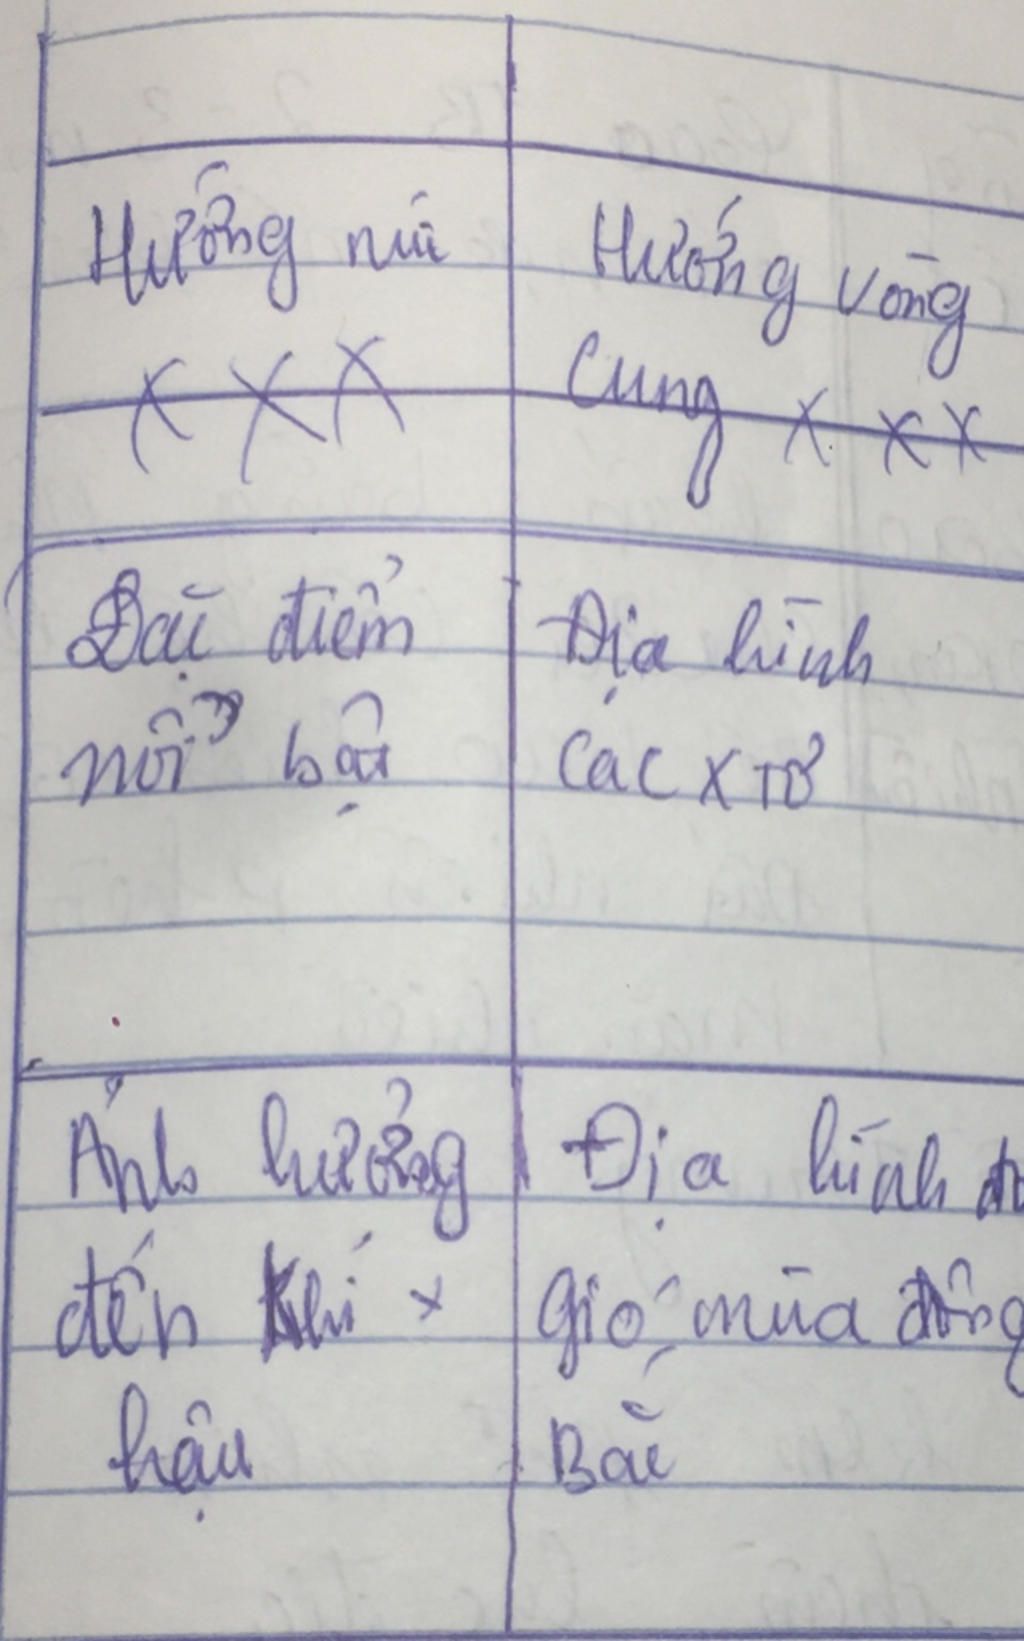 Hướng núi
x x x
Hướng vòng
Cung x x x
Đặc điểm
nổi bật
Địa hình
Các xtơ
Ảnh hưởng
đến khí x
hậu
Địa hình
gió mùa đông
Bắc